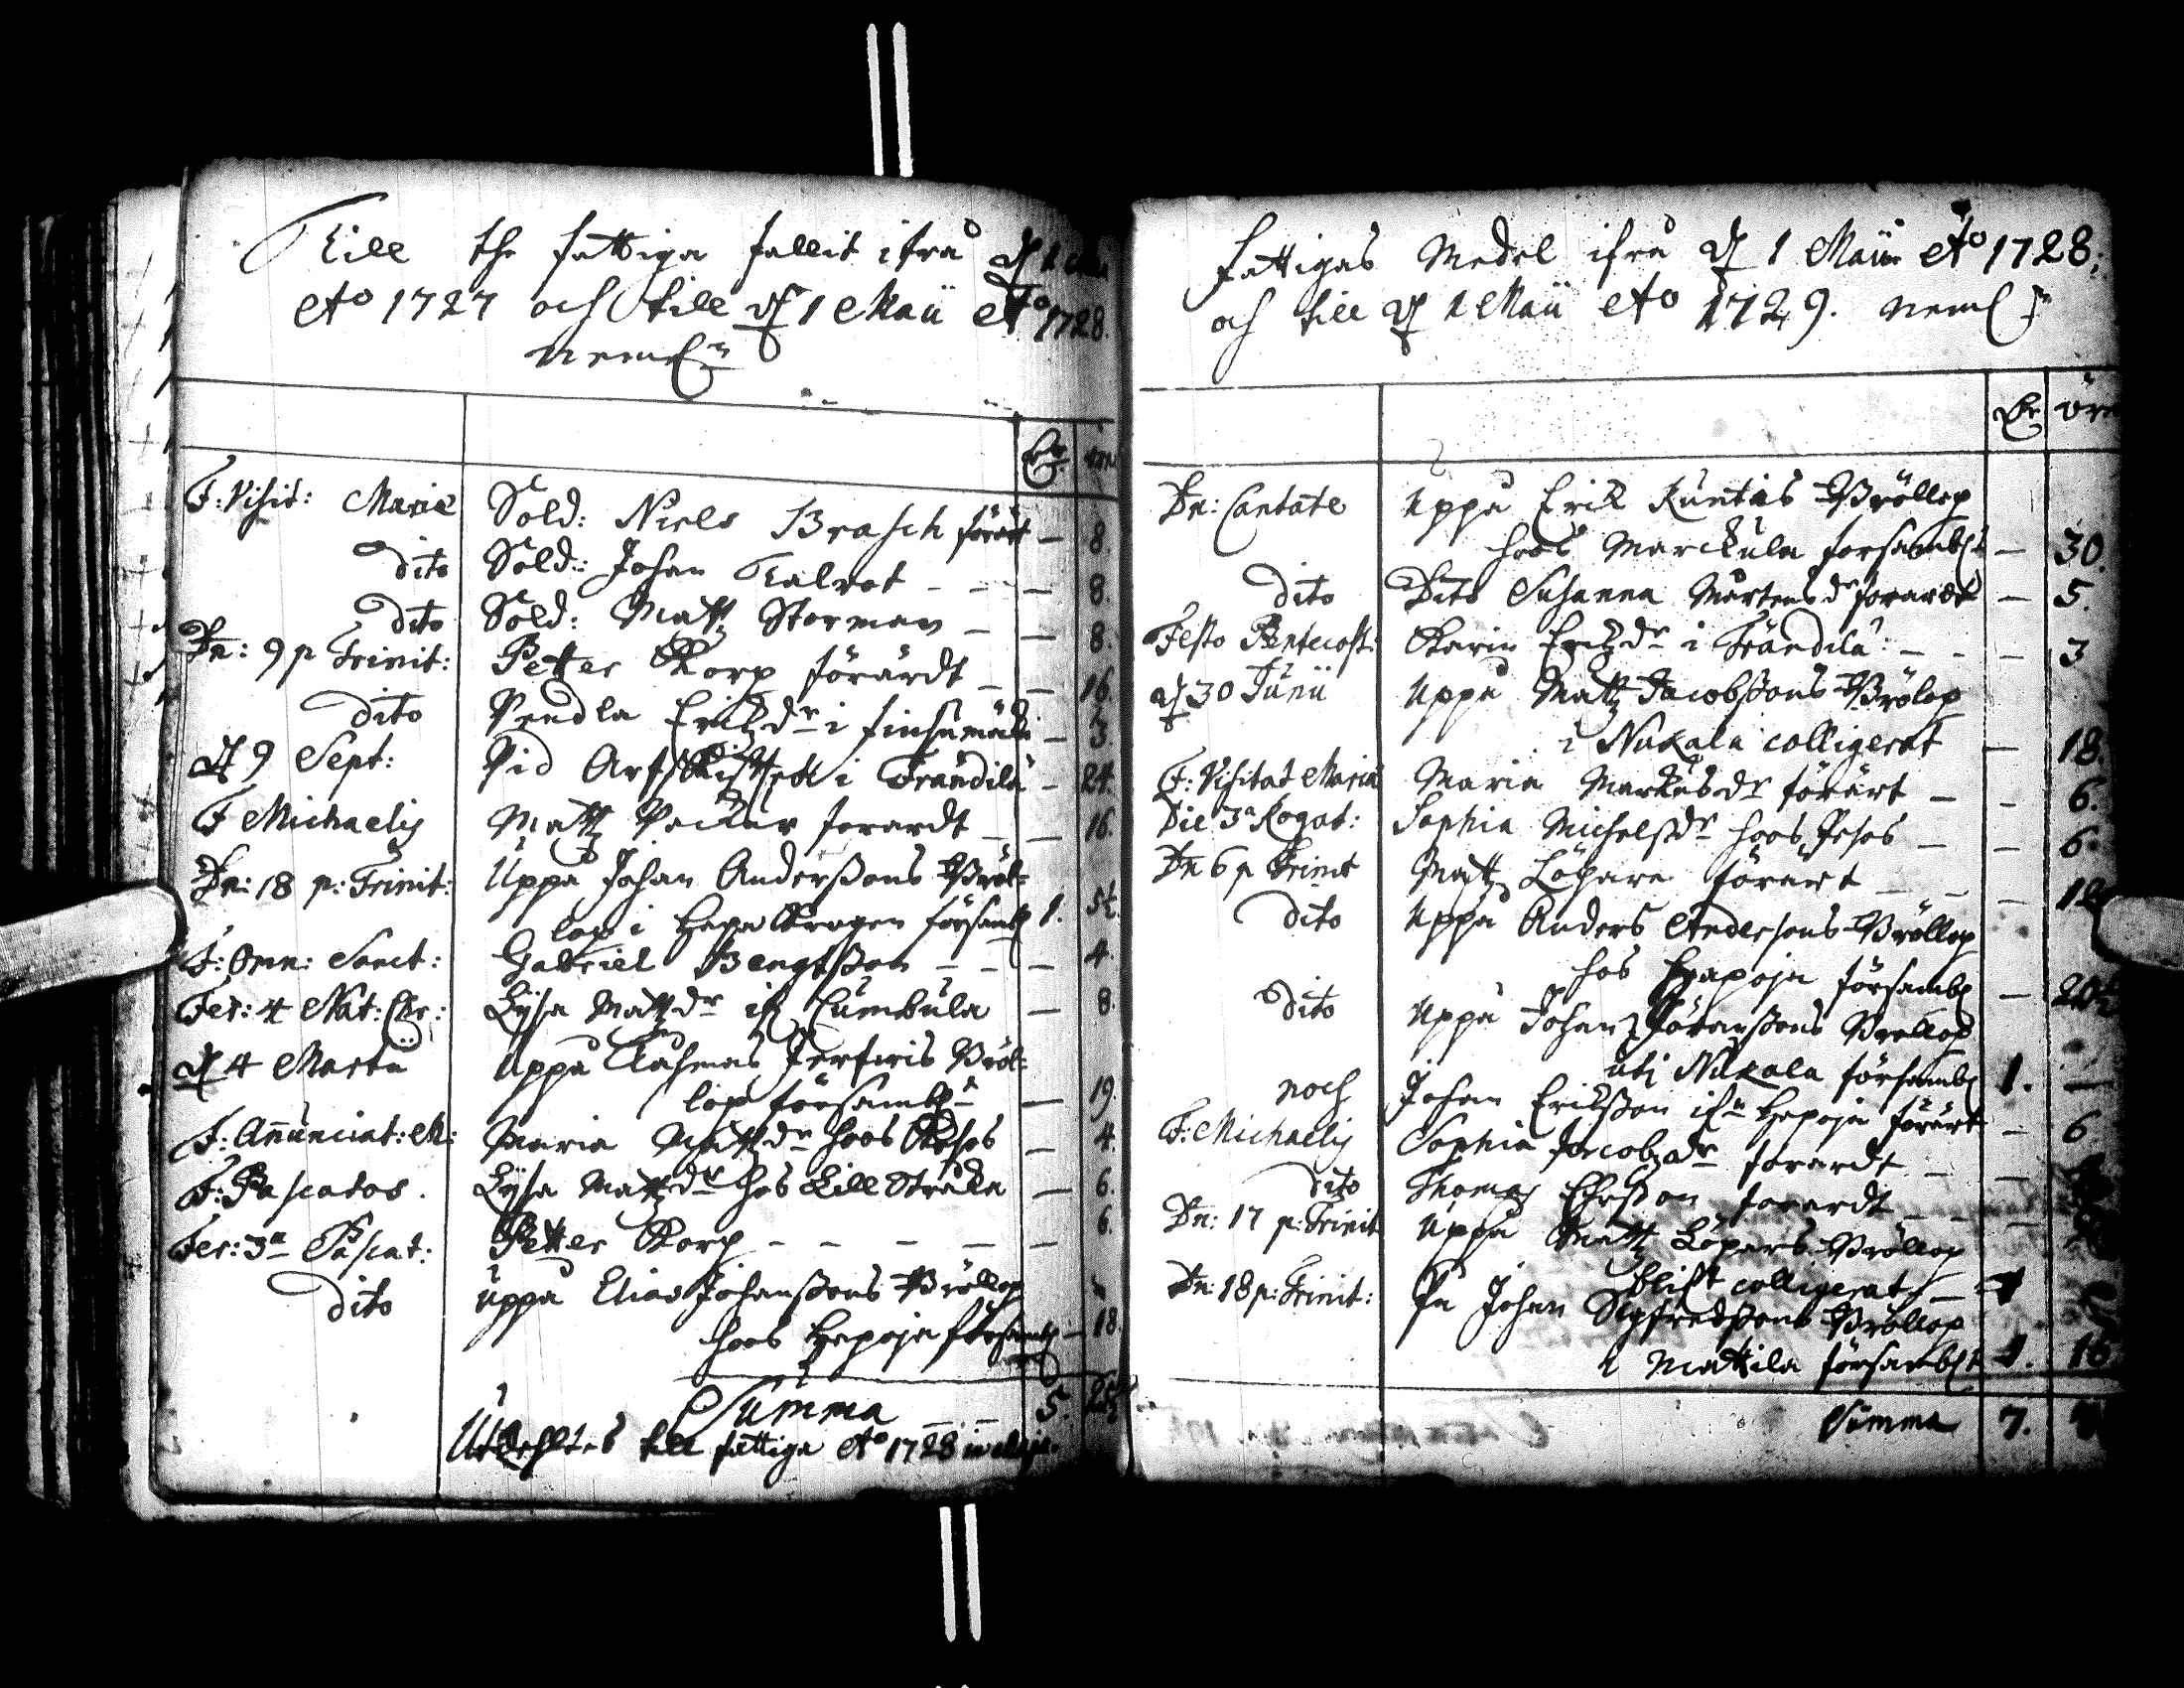 Till the fattiga fallit ifrå d 1 Maii
Ao 1727 och till d 1 Maii Ao 1728.
neml:n
öre
F: Visit: Mariæ Sold: Niels Brasch förärt — 8.
dito Sold: Johan Kalrot — — — 8.
dito Sold: Matz Storman — — 8.
Dn: 9 p Trinit: Petter Korp förärdt — — 16.
dito Vendla Erichzdr i finsemäki — 3.
d 9 Sept: Vid Arfskiftet i Frändilä — 24.
F Michaelis Matz forardt — — 16.
Dn: 18 p: Trinit: Uppå Johan Anderssons Bröl-
lop i Hapa Kragen försambl 1. 5½.
F: Omn: Sanct: Gabriel Bengtsson — — — 4.
Fer: 4 Nat: Chr: Lysa Matzdr if Cumbula — 8.
d 4 Martii Uppå Bröl-
lop försambl:n — 19.
F: Añunciat: M: Maria Matzdr hoos — 4.
F: Pascatos. Lysa Matzdr hos Lill Stråka — 6.
Fer: 3a Pascat: Petter Korp — — — — — 6.
dito Uppå Elias Johanssons Bröllop
hoos Hapoja försambl — 18.
Summa — — 5.
till fattiga Ao 1728 in
Fattigas Medel ifrå d 1 Maii Ao 1728;
och till d 1 Maii Ao 1729. neml:n
öre
Dn: Cantate Uppå Erik Kuntas Bröllop
hoos Marckula forsambl:t — 30.
dito Dito Susanna Mårtensdr forardt — 5.
Festo Pentecost: Karin Erichzdr i Frändilä: — — — 3
d 30 Junii Uppå Matz Jacobssons Brölop
i Nukala colligerat — 18.
F: Visitat Mariæ Maria Markusdr förärt — — 6.
Die 3a Rogat: Sophia Michelsdr hoos — — 6.
Dn 6 p Trinit Matz Löpare förärt — — — 12
dito Uppå Anders Anderssons Bröllop
hos Hapoja försambl — 20½
dito Uppå Johan Göranssons Bröllop
uti Nukala försambl 1. —
noch Johan Eriksson if:n Hapoja förärt — 6
F: Michaelis Sophia Jacobzdr forardt — —
dito Thomas forardt — — —
Dn: 17 p: Trinit Uppå Matz Löpars Bröllop
blift colligerat — 1
Dn: 18 p: Trinit: På Johan Sigfredssons Bröllop
i Mattila försambl:t 1. 16
Summa 7.